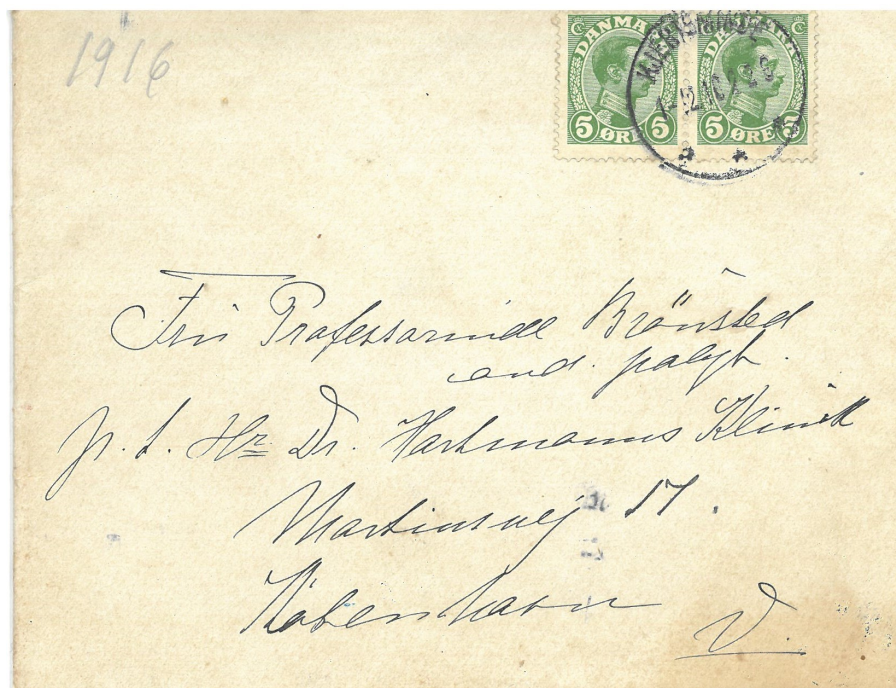 1916
DANMARK
5 ØRE 5
5 ØRE 5
KJERTEMINDE
Fru Professorinde Brönsted
cand. polyt.
p. t. Hr Dr. Hartmanns Klinik
Martinsvej 17.
København
V.